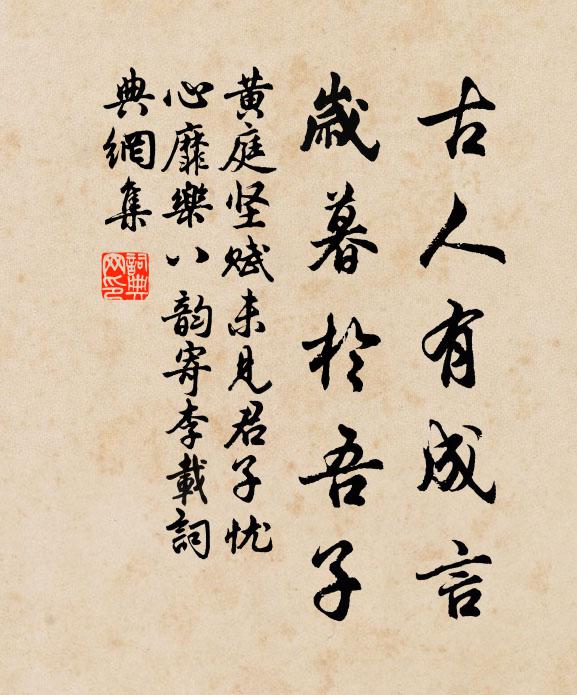 古人有成言
歲暮於吾子
黄庭坚賦未見君子忧
心靡樂八韵寄李載詞
典網集
詞典网印